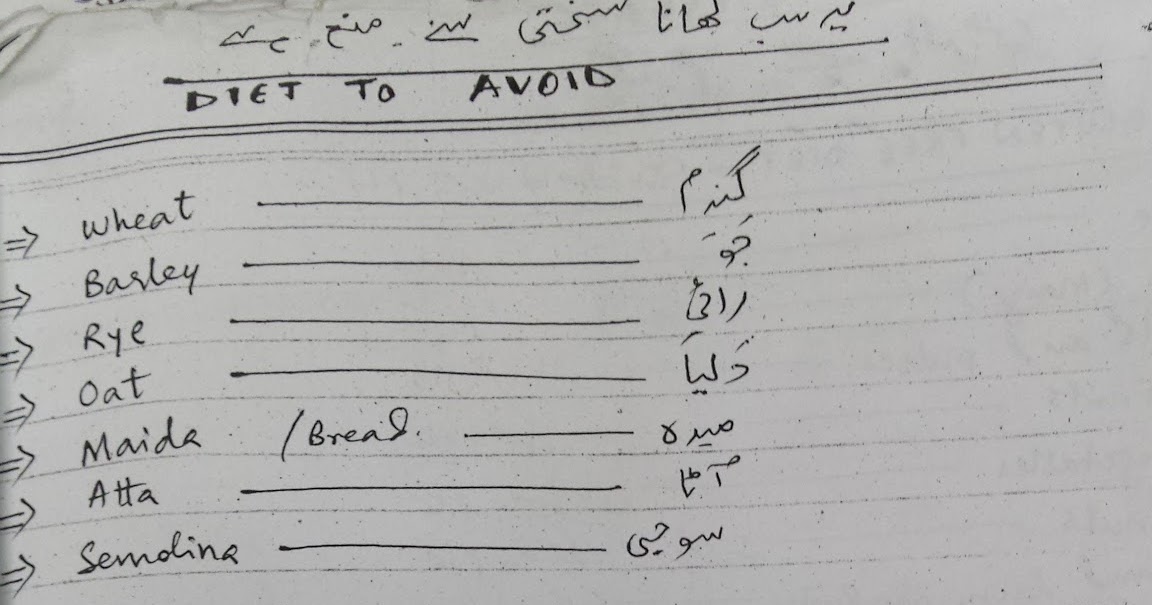 یہ سب کھانا سختی سے منع ہے
DIET TO AVOID
⇒ Wheat گندم
⇒ Barley جَوَ
⇒ Rye رائی
⇒ Oat دَلیَا
⇒ Maida / Bread. میدہ
⇒ Atta آٹا
⇒ Semolina سوجی